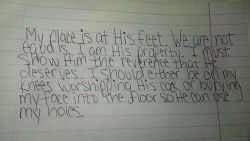 My place is at His feet. We are not
equals. I am His property. I must
show Him the reverence that He
deserves. I should either be on my
knees worshipping His cock or burying
my face into the floor so He can use
my holes.